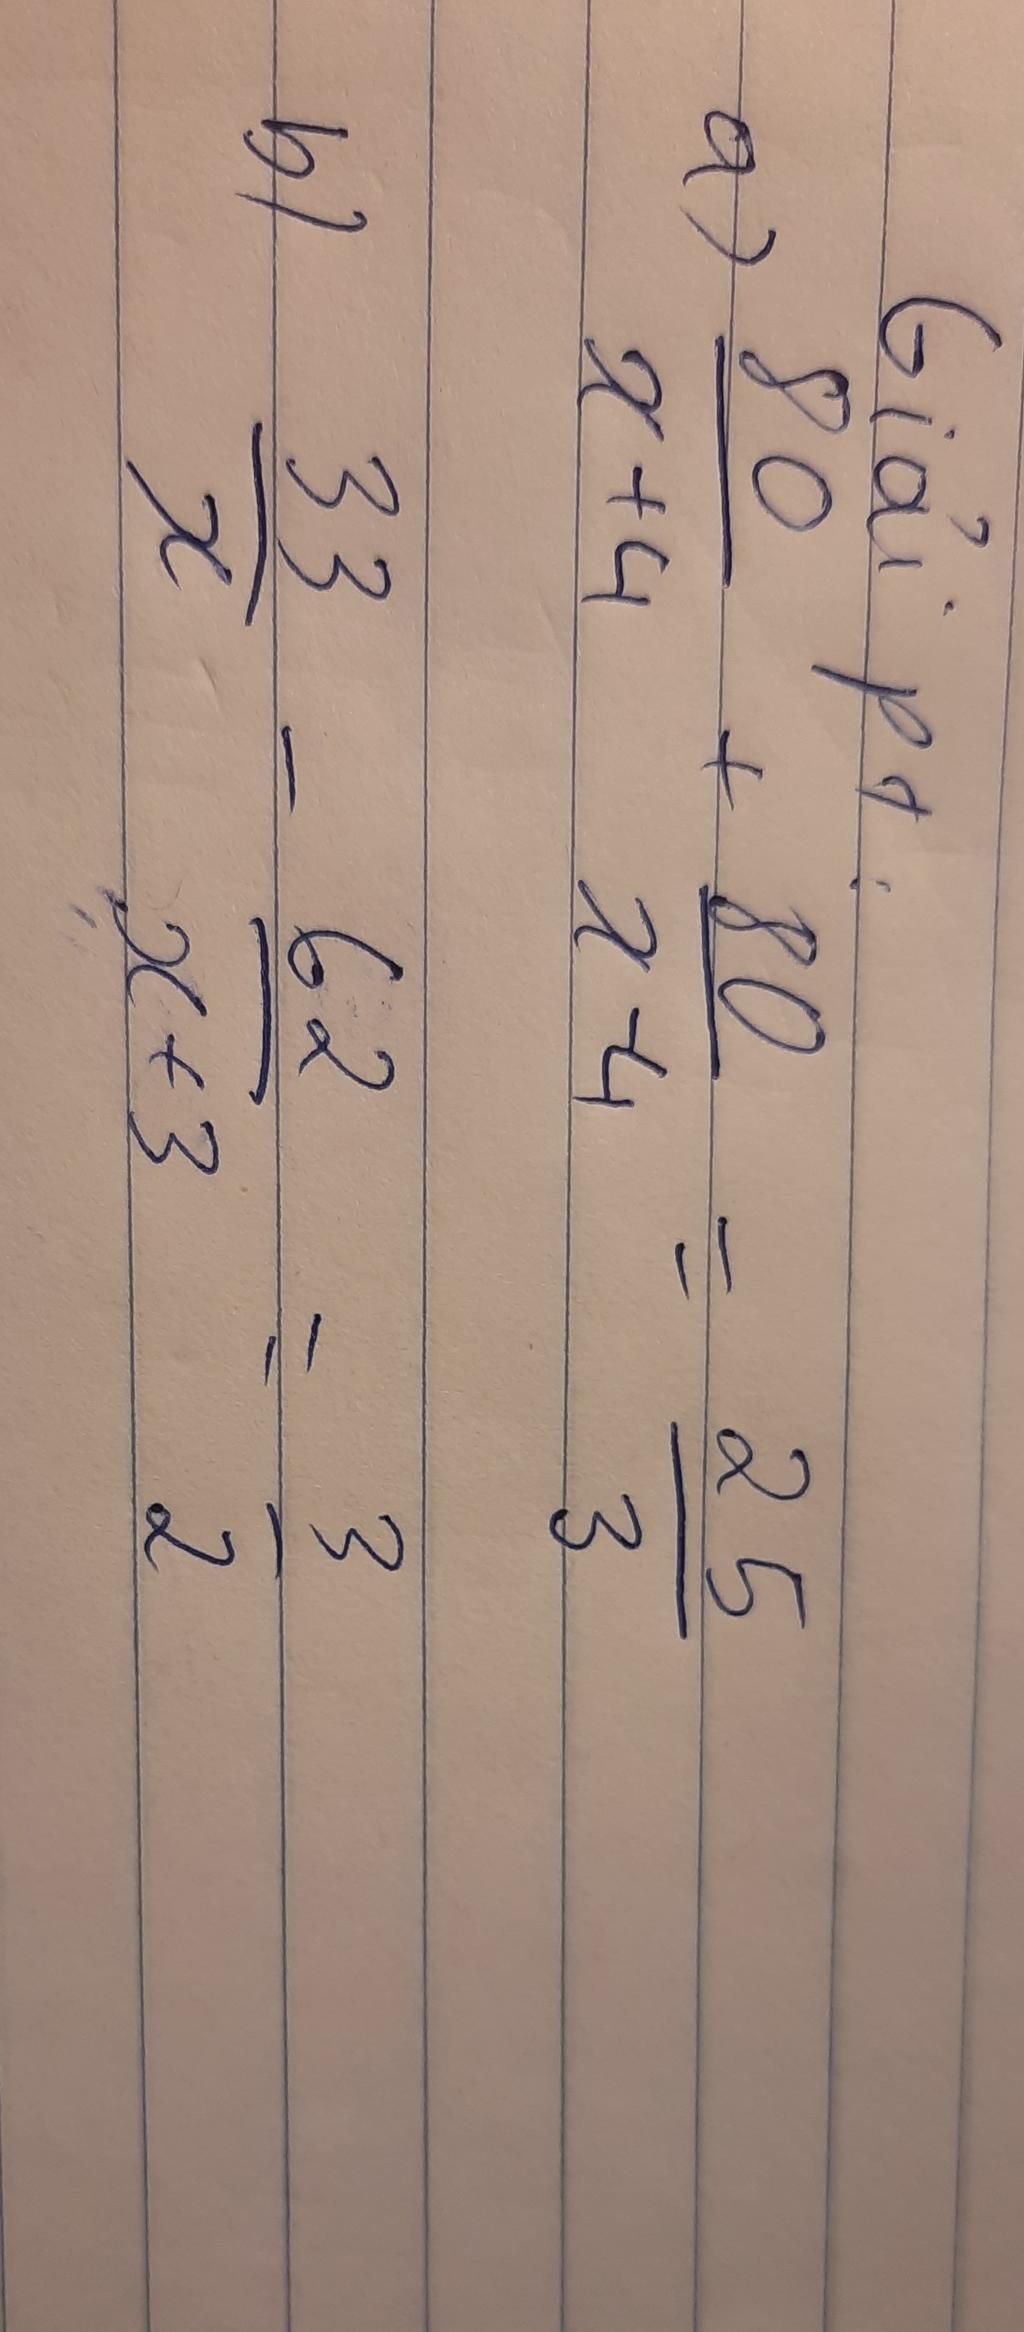 Giải pt:
a) 80/x+4 + 80/x-4 = 25/3
b) 33/x - 62/x+3 = 3/2